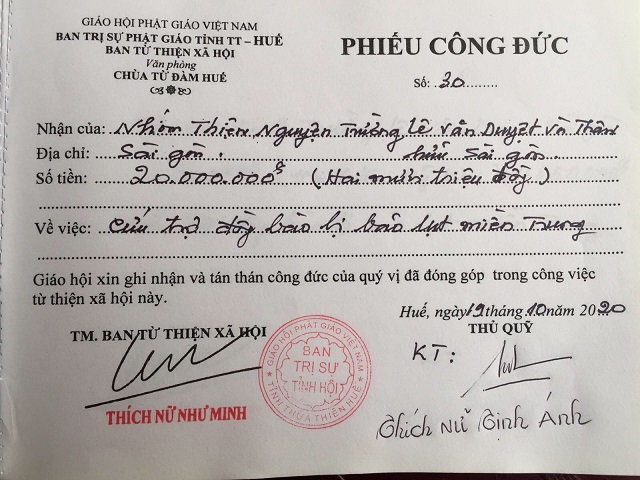 GIÁO HỘI PHẬT GIÁO VIỆT NAM
BAN TRỊ SỰ PHẬT GIÁO TỈNH TT – HUẾ
BAN TỪ THIỆN XÃ HỘI
Văn phòng
CHÙA TỪ ĐÀM HUẾ
PHIẾU CÔNG ĐỨC
Số: 30
Nhận của: Nhóm Thiện Nguyện Trường Lê Văn Duyệt và Thân
Địa chỉ: Sài gòn. hữu Sài gòn.
Số tiền: 20.000.000đ (Hai mươi triệu đồng)
Về việc: Cứu trợ đồng bào bị bảo lụt miền Trung
Giáo hội xin ghi nhận và tán thán công đức của quý vị đã đóng góp trong công việc
từ thiện xã hội này.
Huế, ngày 19 tháng 10 năm 2020
TM. BAN TỪ THIỆN XÃ HỘI
THỦ QUỸ
KT:
GIÁO HỘI PHẬT GIÁO VIỆT NAM
BAN
TRỊ SỰ
TỈNH HỘI
TỈNH THỪA THIÊN HUẾ
THÍCH NỮ NHƯ MINH
Thích Nữ Tịnh Ánh